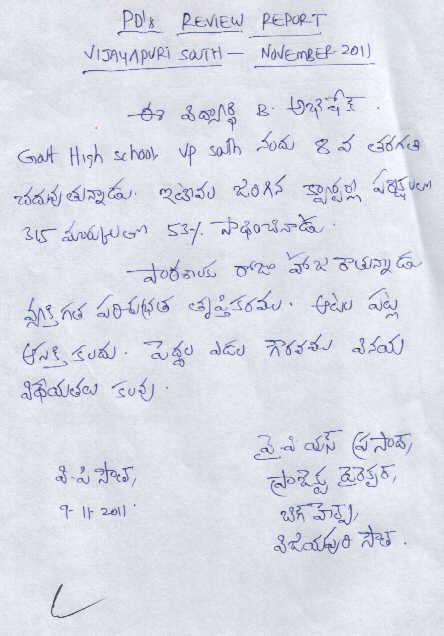 PD's REVIEW REPORT
VIJAYAPURI SOUTH — NOVEMBER-2011
ఈ విద్యార్థి B. అభిషేక్.
Govt High school, VP south నందు 8 వ తరగతి
చదువుతున్నాడు. ఇటీవల జరిగిన క్వార్టర్లీ పరీక్షలలో
315 మార్కులతో 53% సాధించినాడు.
పాఠశాలకు రోజూ హాజరౌతున్నాడు
వ్యక్తిగత పరిశుభ్రత తృప్తికరము. ఆటల పట్ల
ఆసక్తి కలదు. పెద్దల ఎడల గౌరవము వినయ
విధేయతలు కలవు.
వై. వి యస్ ప్రసాద్,
ప్రాజెక్టు డైరెక్టర్,
బిగ్ హెల్ప్,
విజయపురి సౌత్.
వి.పి సౌత్,
9-11-2011